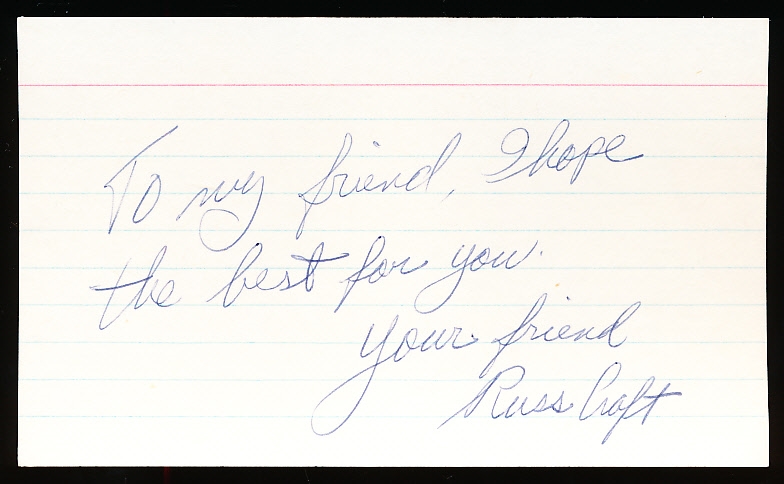 To my friend, I hope
the best for you.
Your friend
Russ Craft